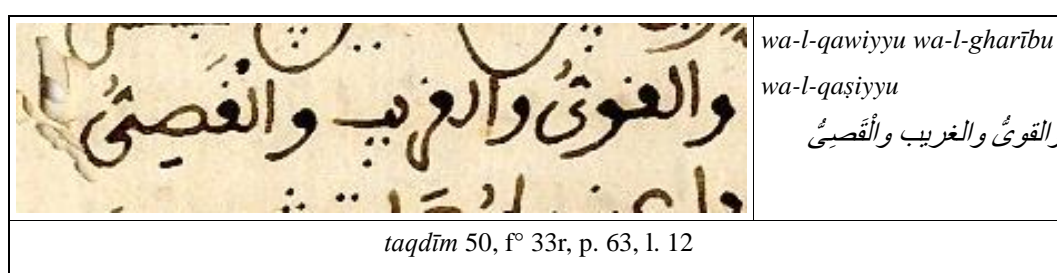 والقوىُّ والغريب والقَصِىُّ
wa-l-qawiyyu wa-l-gharību
wa-l-qaṣiyyu
والقوىُّ والغريب والْقَصِىُّ
taqdīm 50, f° 33r, p. 63, l. 12